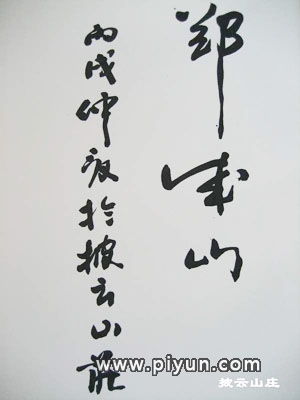 郑成山
丙戌仲夏於披云山莊
www.piyun.com
披云山庄